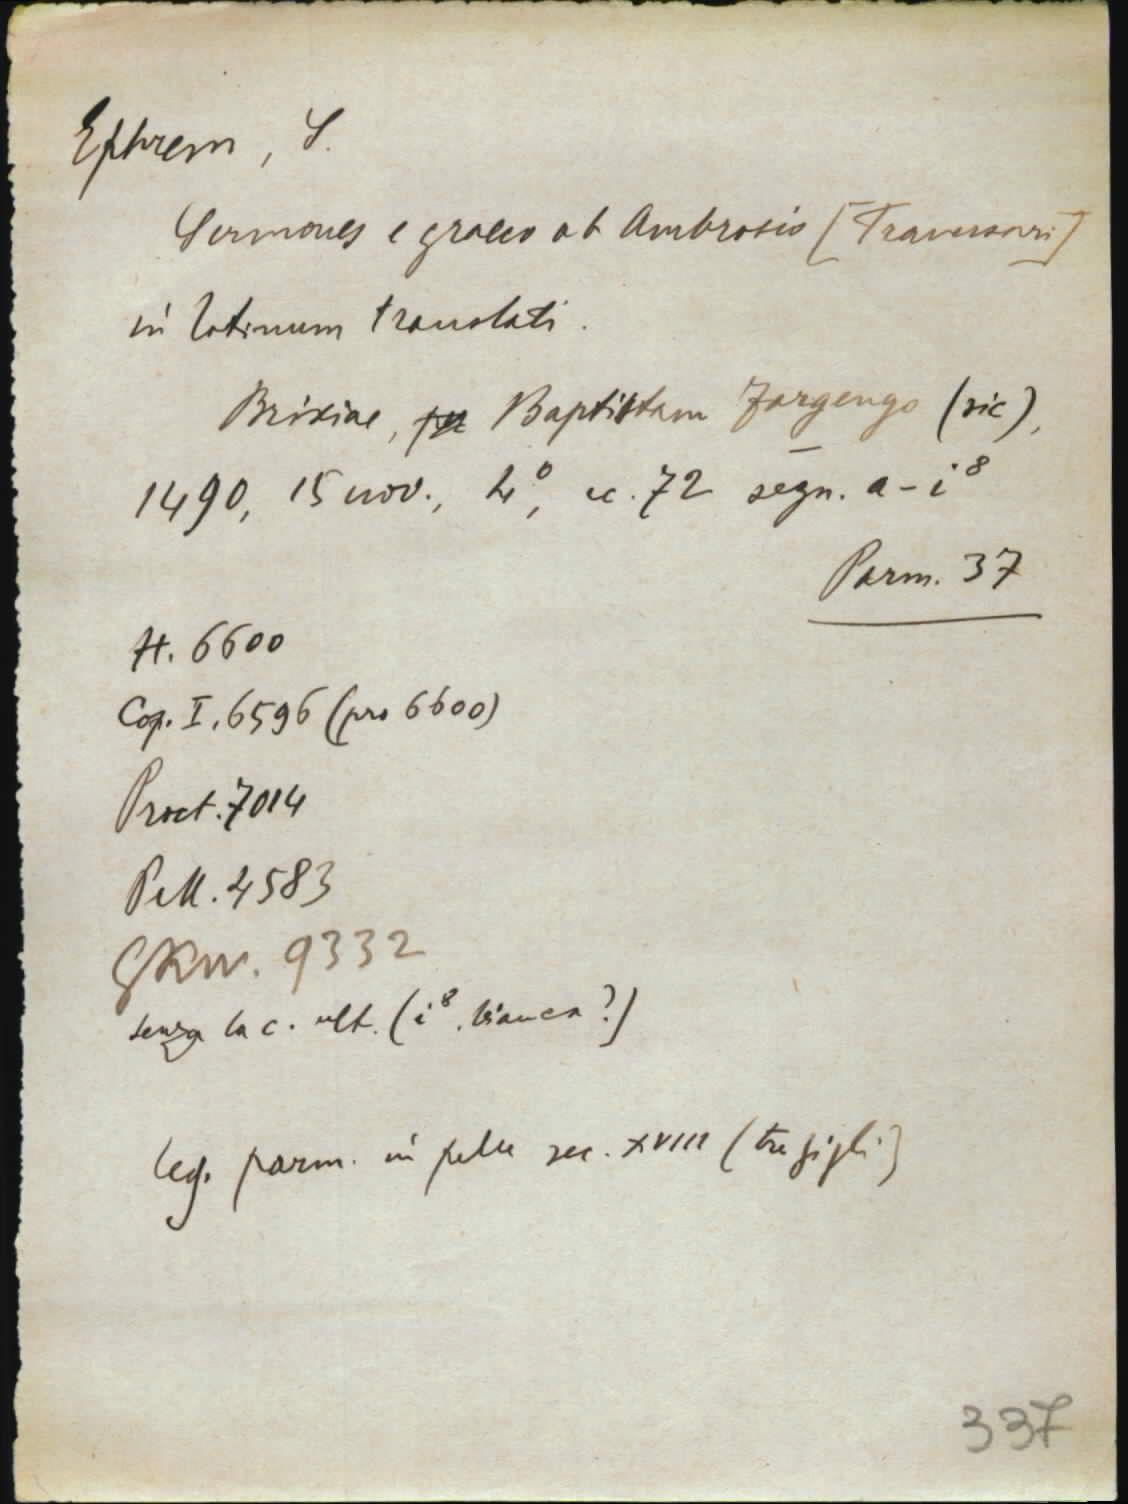 Ephrem, S.
Sermones e graeco ab Ambrosio [Traversari]
in latinum translati.
Brixiae, per Baptistam Fargengo (sic),
1490, 15 nov., 4°, cc. 72 segn. a-i⁸
Parm. 37
H. 6600
Cop. I. 6596 (pro 6600)
Proct. 7014
Pell. 4583
GKW. 9332
senza la c. ult. (i⁸, bianca?)
leg. parm. in pelle sec. XVIII (tre gigli)
337